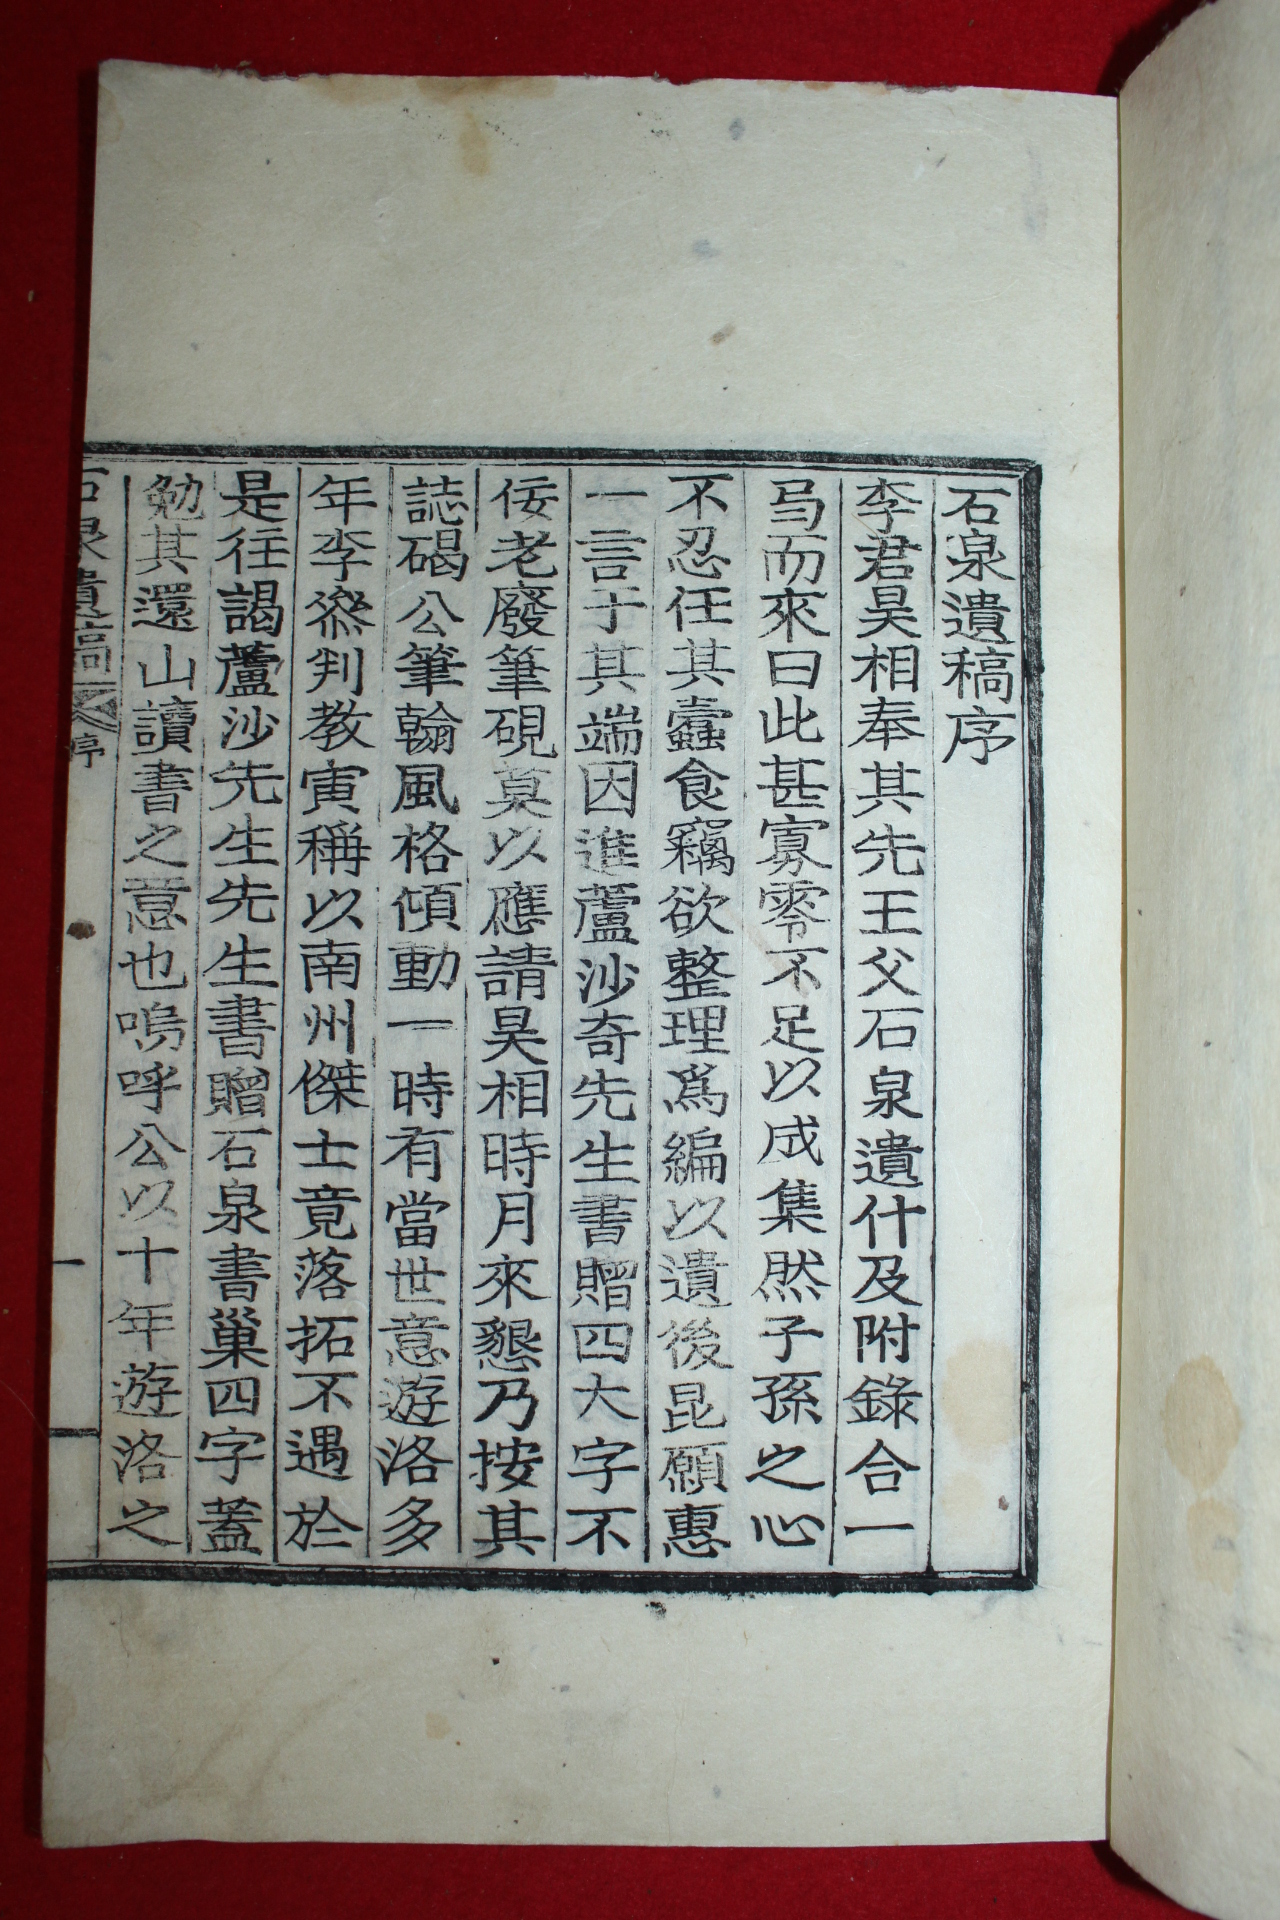 石泉遺稿序
李君昊相奉其先王父石泉遺什及附錄合一
弓而來曰此甚寡零不足以成集然子孫之心
不忍任其蠹食竊欲整理爲編以遺後昆願惠
一言于其端因進蘆沙奇先生書贈四大字不
佞老廢筆硯莫以應請昊相時月來懇乃按其
誌碣公筆翰風格傾動一時有當世意游洛多
年李叅判教寅稱以南州傑士竟落拓不遇於
是往謁蘆沙先生先生書贈石泉書巢四字蓋
勉其還山讀書之意也嗚呼公以十年遊洛之
石泉遺稿 序 一